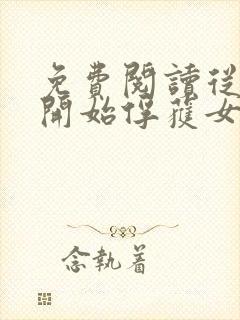 免費閱讀從
開始俘獲女
念執着